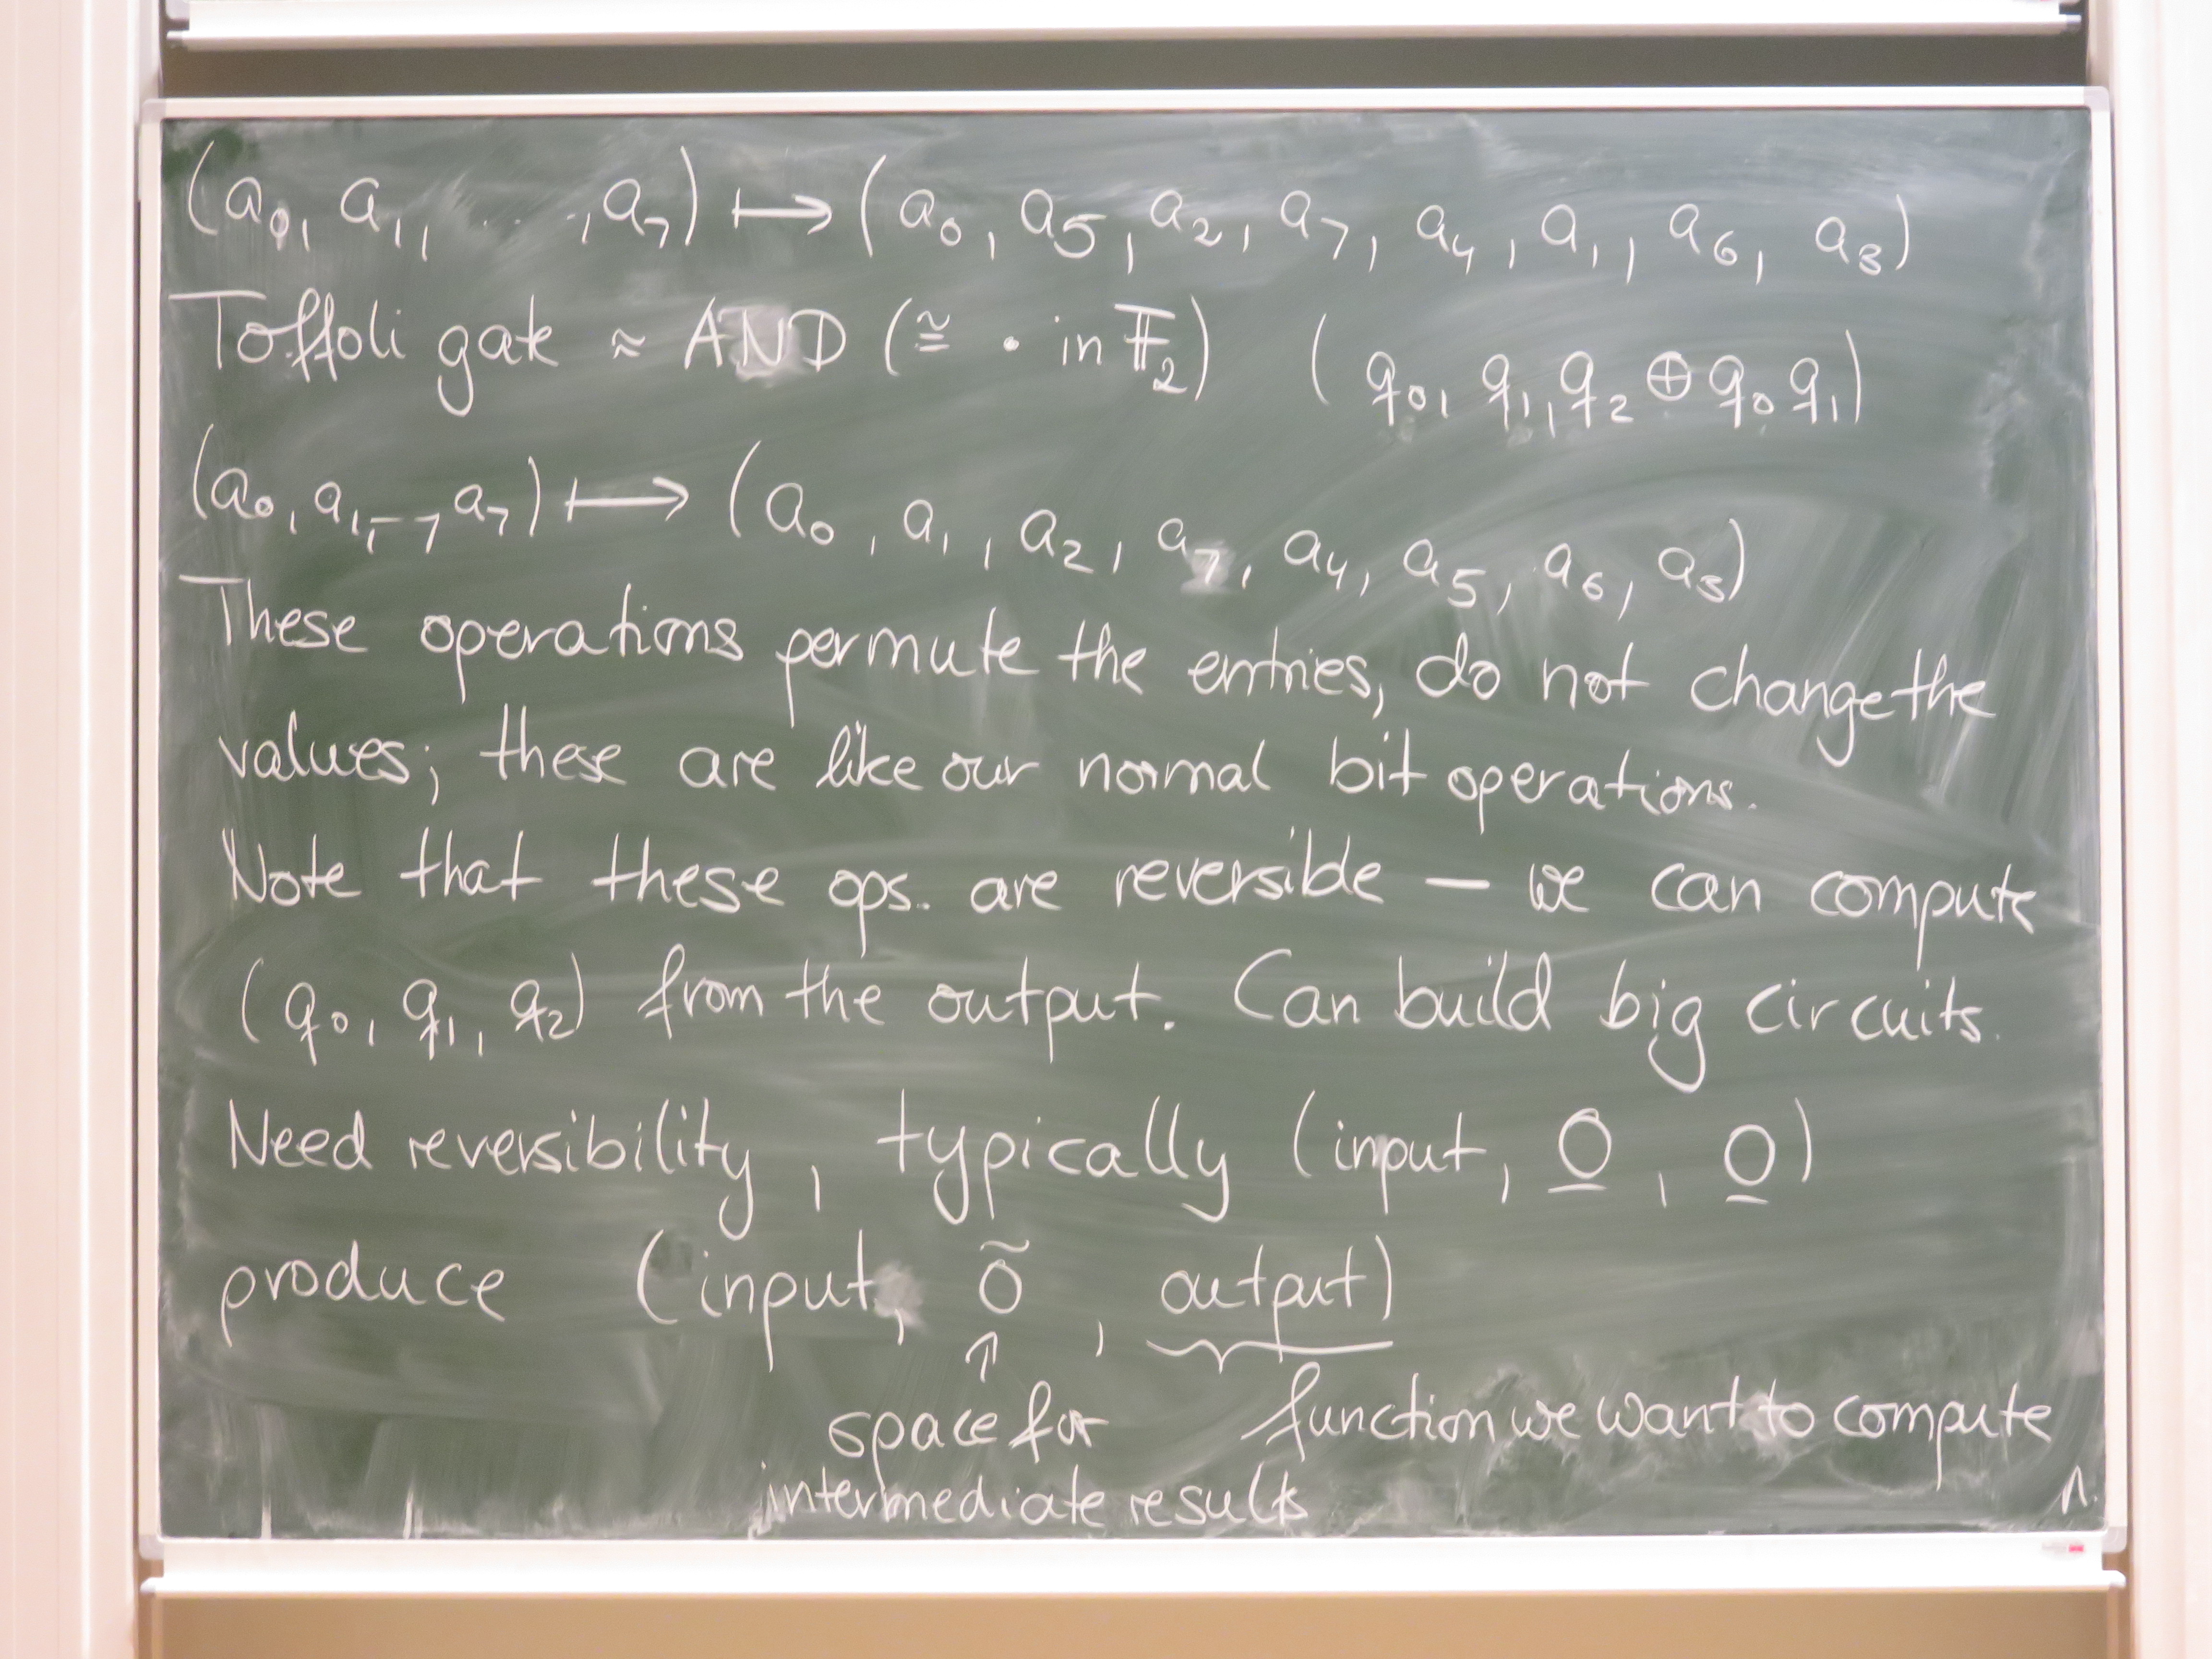 (a₀, a₁, ..., a₇) ↦ (a₀, a₅, a₂, a₇, a₄, a₁, a₆, a₃)
Toffoli gate ≈ AND (≅ · in 𝔽₂) (q₀, q₁, q₂ ⊕ q₀ q₁)
(a₀, a₁, --, a₇) ↦ (a₀, a₁, a₂, a₇, a₄, a₅, a₆, a₃)
These operations permute the entries, do not change the
values; these are like our normal bit operations.
Note that these ops. are reversible — we can compute
(q₀, q₁, q₂) from the output. Can build big circuits.
Need reversibility, typically (input, 0̲, 0̲)
produce (input, õ, output)
↑
space for function we want to compute
intermediate results